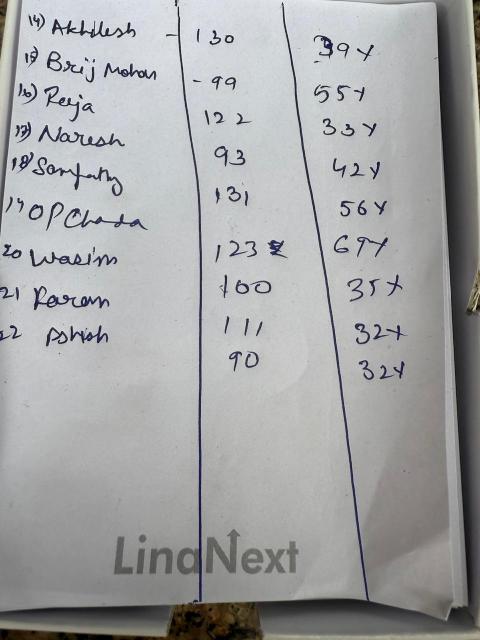 14) Akhilesh - 130 39Y
15) Brij Mohan - 99 55Y
16) Reeja 122 33Y
17) Naresh 93 42Y
18) Sampathy 131 56Y
19 OP Chada 123 69Y
20 Wasim 100 35Y
21 Karan 111 32Y
22 Ashish 90 32Y
LinaNext